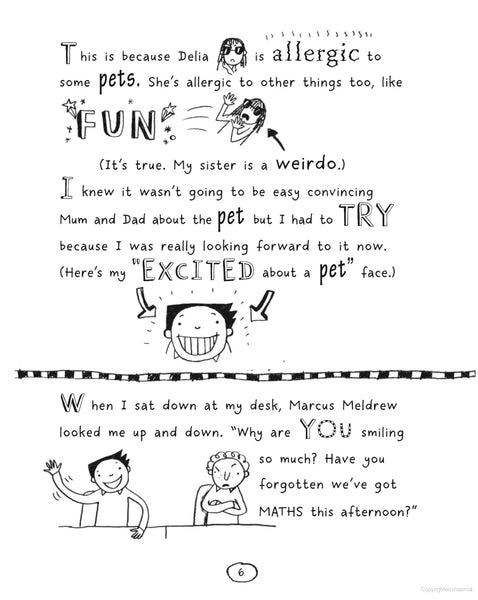 This is because Delia is allergic to
some pets. She's allergic to other things too, like
FUN
(It's true. My sister is a weirdo.)
I knew it wasn't going to be easy convincing
Mum and Dad about the pet but I had to TRY
because I was really looking forward to it now.
(Here's my "EXCITED about a pet" face.)
When I sat down at my desk, Marcus Meldrew
looked me up and down. "Why are YOU smiling
so much? Have you
forgotten we've got
MATHS this afternoon?"
6
Copyrighted material